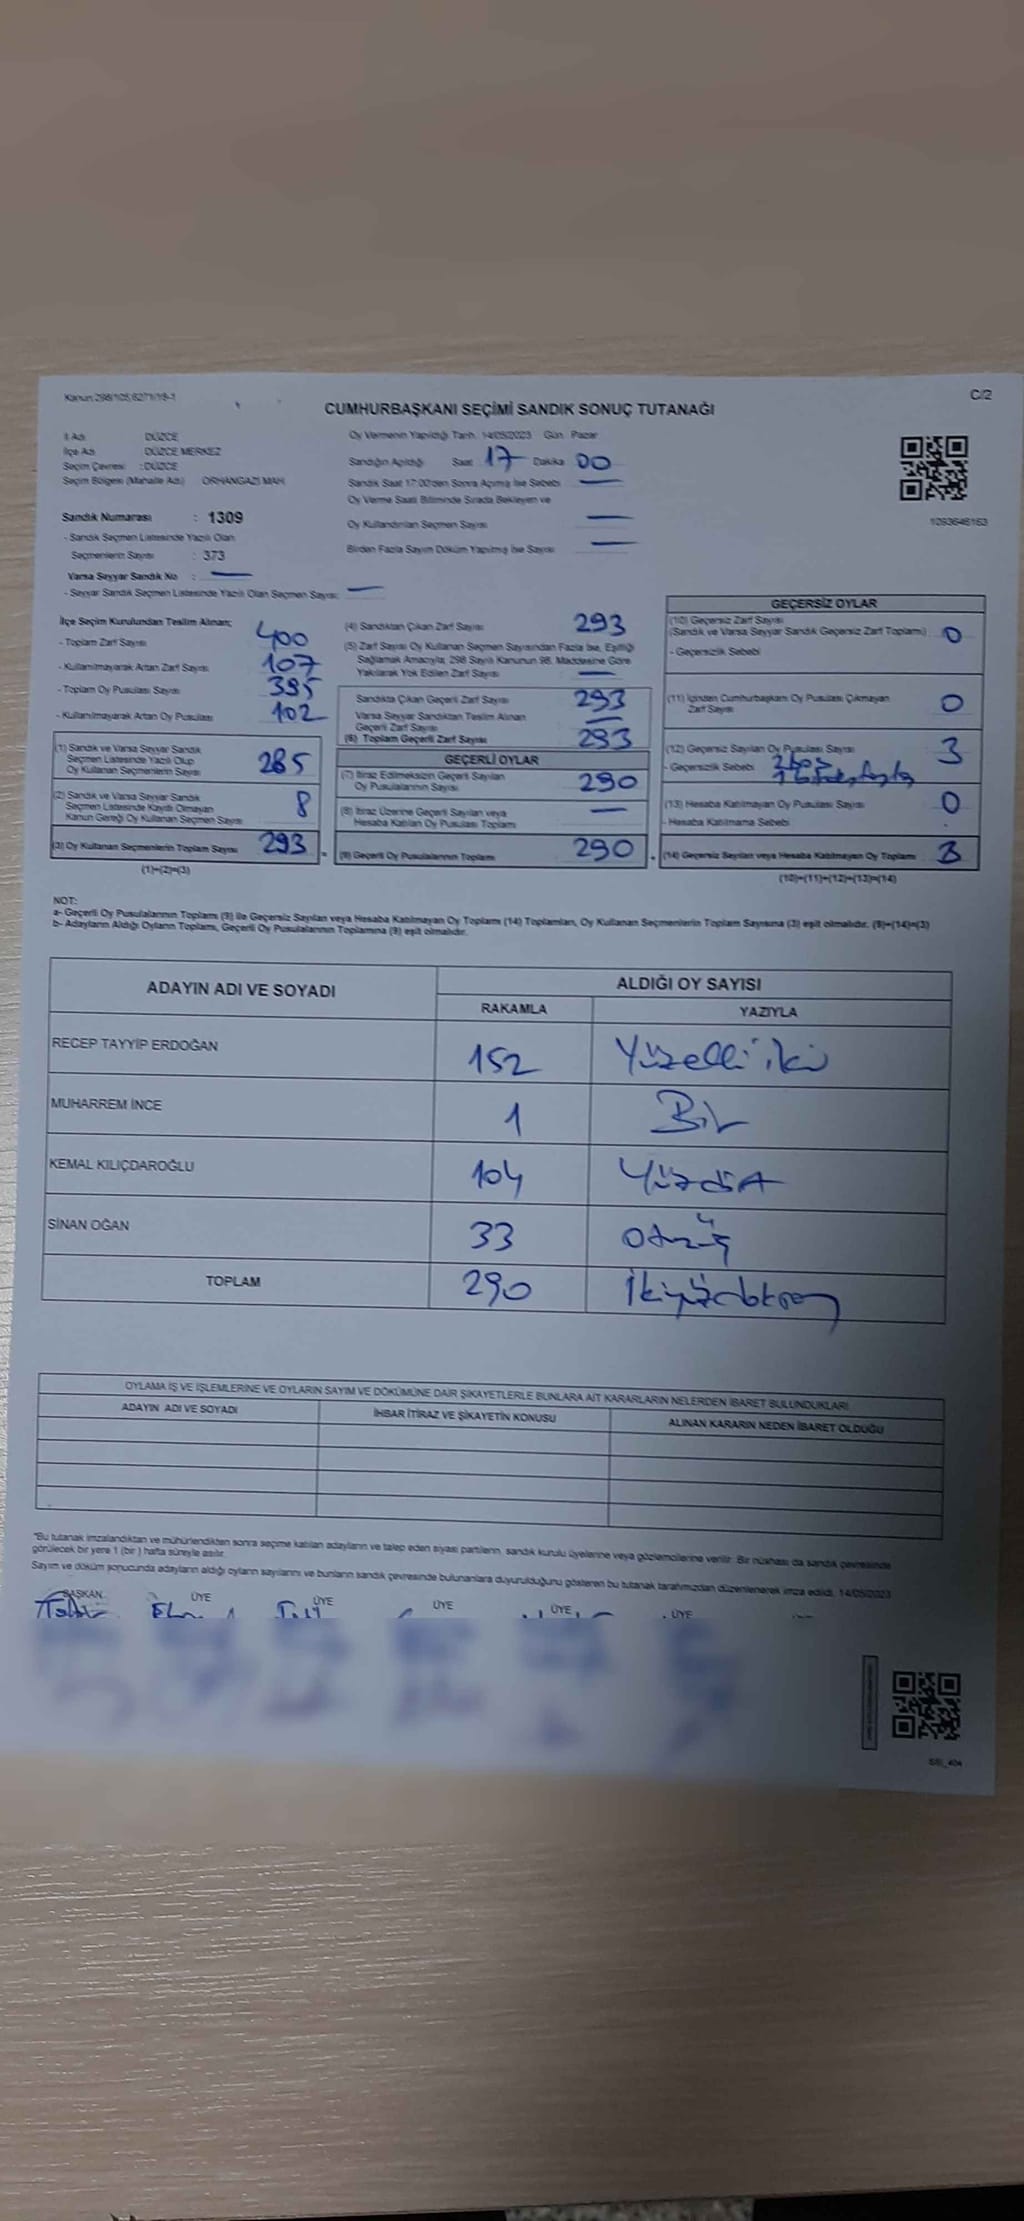 Kanun:298/105,6271/18-1
C/2
CUMHURBAŞKANI SEÇİMİ SANDIK SONUÇ TUTANAĞI
İl Adı DÜZCE
İlçe Adı DÜZCE MERKEZ
Seçim Çevresi : DÜZCE
Seçim Bölgesi (Mahalle Adı) ORHANGAZİ MAH.
Oy Vermenin Yapıldığı Tarih: 14/05/2023 Gün: Pazar
Sandığın Açıldığı Saat 17 Dakika 00
Sandık Saat 17:00'den Sonra Açılmış İse Sebebi —
Oy Verme Saati Bitiminde Sırada Bekleyen ve
Oy Kullandırılan Seçmen Sayısı —
Birden Fazla Sayım Döküm Yapılmış İse Sayısı —
1293646163
Sandık Numarası : 1309
- Sandık Seçmen Listesinde Yazılı Olan
Seçmenlerin Sayısı : 373
Varsa Seyyar Sandık No : —
- Seyyar Sandık Seçmen Listesinde Yazılı Olan Seçmen Sayısı: —
İlçe Seçim Kurulundan Teslim Alınan;
- Toplam Zarf Sayısı 400
- Kullanılmayarak Artan Zarf Sayısı 107
- Toplam Oy Pusulası Sayısı 395
- Kullanılmayarak Artan Oy Pusulası 102
(1) Sandık ve Varsa Seyyar Sandık
Seçmen Listesinde Yazılı Olup
Oy Kullanan Seçmenlerin Sayısı 285
(2) Sandık ve Varsa Seyyar Sandık
Seçmen Listesinde Kaydı Olmayan
Kanun Gereği Oy Kullanan Seçmen Sayısı 8
(3) Oy Kullanan Seçmenlerin Toplam Sayısı 293
(1)+(2)=(3)
(4) Sandıktan Çıkan Zarf Sayısı 293
(5) Zarf Sayısı Oy Kullanan Seçmen Sayısından Fazla İse, Eşitliği
Sağlamak Amacıyla; 298 Sayılı Kanunun 98. Maddesine Göre
Yakılarak Yok Edilen Zarf Sayısı —
Sandıkta Çıkan Geçerli Zarf Sayısı 293
Varsa Seyyar Sandıktan Teslim Alınan
Geçerli Zarf Sayısı —
(6) Toplam Geçerli Zarf Sayısı 293
GEÇERLİ OYLAR
(7) İtiraz Edilmeksizin Geçerli Sayılan
Oy Pusulalarının Sayısı 290
(8) İtiraz Üzerine Geçerli Sayılan veya
Hesaba Katılan Oy Pusulası Toplamı —
(9) Geçerli Oy Pusulalarının Toplamı 290
GEÇERSİZ OYLAR
(10) Geçersiz Zarf Sayısı
(Sandık ve Varsa Seyyar Sandık Geçersiz Zarf Toplamı) 0
- Geçersizlik Sebebi
(11) İçinden Cumhurbaşkanı Oy Pusulası Çıkmayan
Zarf Sayısı 0
(12) Geçersiz Sayılan Oy Pusulası Sayısı 3
- Geçersizlik Sebebi 2 boş
(13) Hesaba Katılmayan Oy Pusulası Sayısı 0
- Hesaba Katılmama Sebebi
(14) Geçersiz Sayılan veya Hesaba Katılmayan Oy Toplamı 3
(10)+(11)+(12)+(13)=(14)
NOT:
a- Geçerli Oy Pusulalarının Toplamı (9) ile Geçersiz Sayılan veya Hesaba Katılmayan Oy Toplamı (14) Toplamları, Oy Kullanan Seçmenlerin Toplam Sayısına (3) eşit olmalıdır. (9)+(14)=(3)
b- Adayların Aldığı Oyların Toplamı, Geçerli Oy Pusulalarının Toplamına (9) eşit olmalıdır.
ADAYIN ADI VE SOYADI
ALDIĞI OY SAYISI
RAKAMLA YAZIYLA
RECEP TAYYİP ERDOĞAN 152 Yüzelli iki
MUHARREM İNCE 1 Bir
KEMAL KILIÇDAROĞLU 104 Yüzdört
SİNAN OĞAN 33 Otuzüç
TOPLAM 290 İkiyüzdoksan
OYLAMA İŞ VE İŞLEMLERİNE VE OYLARIN SAYIM VE DÖKÜMÜNE DAİR ŞİKAYETLERLE BUNLARA AİT KARARLARIN NELERDEN İBARET BULUNDUKLARI
ADAYIN ADI VE SOYADI İHBAR İTİRAZ VE ŞİKAYETİN KONUSU ALINAN KARARIN NEDEN İBARET OLDUĞU
*Bu tutanak imzalandıktan ve mühürlendikten sonra seçime katılan adayların ve talep eden siyasi partilerin, sandık kurulu üyelerine veya gözlemcilerine verilir. Bir nüshası da sandık çevresinde
görülecek bir yere 1 (bir) hafta süreyle asılır.
Sayım ve döküm sonucunda adayların aldığı oyların sayılarını ve bunların sandık çevresinde bulunanlara duyurulduğunu gösteren bu tutanak tarafımızdan düzenlenerek imza edildi. 14/05/2023
BAŞKAN ÜYE ÜYE ÜYE ÜYE ÜYE